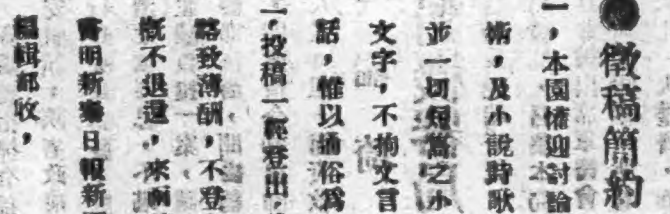 ●徵稿簡約
一，本園懽迎討論
術，及小說詩歌
並一切短篇之小
文字，不拘文言
話，惟以通俗爲
一，投稿一經登出，
略致薄酬，不登
概不退還，來函
書明新秦日報新
編輯部收，